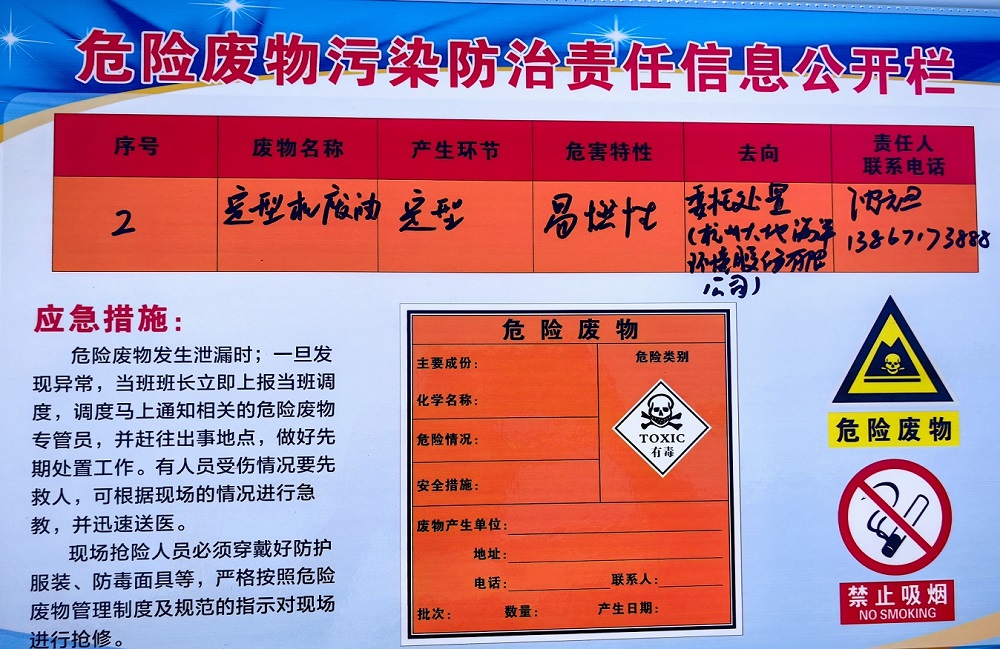 危险废物污染防治责任信息公开栏
序号 废物名称 产生环节 危害特性 去向 责任人
联系电话
2 定型机废油 定型 易燃性 委托处置
(杭州大地海洋
环境股份有限
公司)
13867173888
应急措施：
危险废物发生泄漏时；一旦发
现异常，当班班长立即上报当班调
度，调度马上通知相关的危险废物
专管员，并赶往出事地点，做好先
期处置工作。有人员受伤情况要先
救人，可根据现场的情况进行急
教，并迅速送医。
现场抢险人员必须穿戴好防护
服装、防毒面具等，严格按照危险
废物管理制度及规范的指示对现场
进行抢修。
危险废物
主要成份：
危险类别
化学名称：
危险情况：
安全措施：
TOXIC
有毒
废物产生单位：
地址：
电话： 联系人：
批次： 数量： 产生日期：
危险废物
禁止吸烟
NO SMOKING